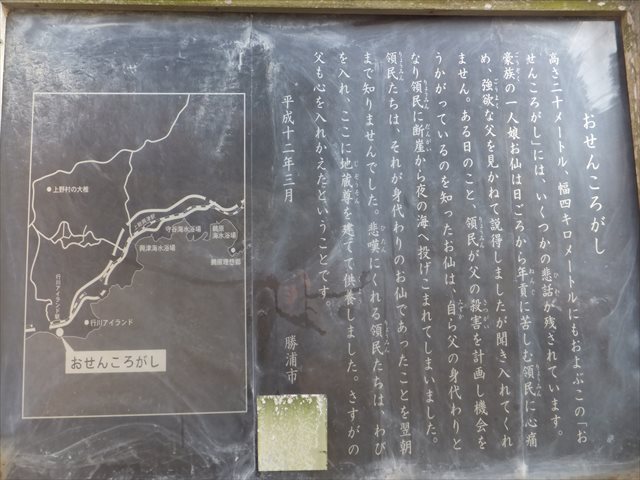 おせんころがし
高さ二十メートル、幅四キロメートルにもおよぶこの「お
せんころがし」には、いくつかの悲話が残されています。
豪族の一人娘お仙は日ごろから年貢に苦しむ領民に心痛
め 強欲な父を見かねて説得しましたが聞き入れてくれ
ません。ある日のこと、領民が父の殺害を計画し機会を
うかがっているのを知ったお仙は、自ら父の身代わりと
なり領民に断崖から夜の海へ投げこまれてしまいました。
領民たちは、それが身代わりのお仙であったことを翌朝
まで知りませんでした。悲嘆にくれる領民たちは わび
を入れ、ここに地蔵尊を建てて供養しました。さすがの
父も心を入れかえたということです。
平成十二年三月 勝浦市
上野村の大椎
上総興津駅
守谷海水浴場
鵜原海水浴場
興津海水浴場
鵜原理想郷
行川アイランド駅
行川アイランド
おせんころがし